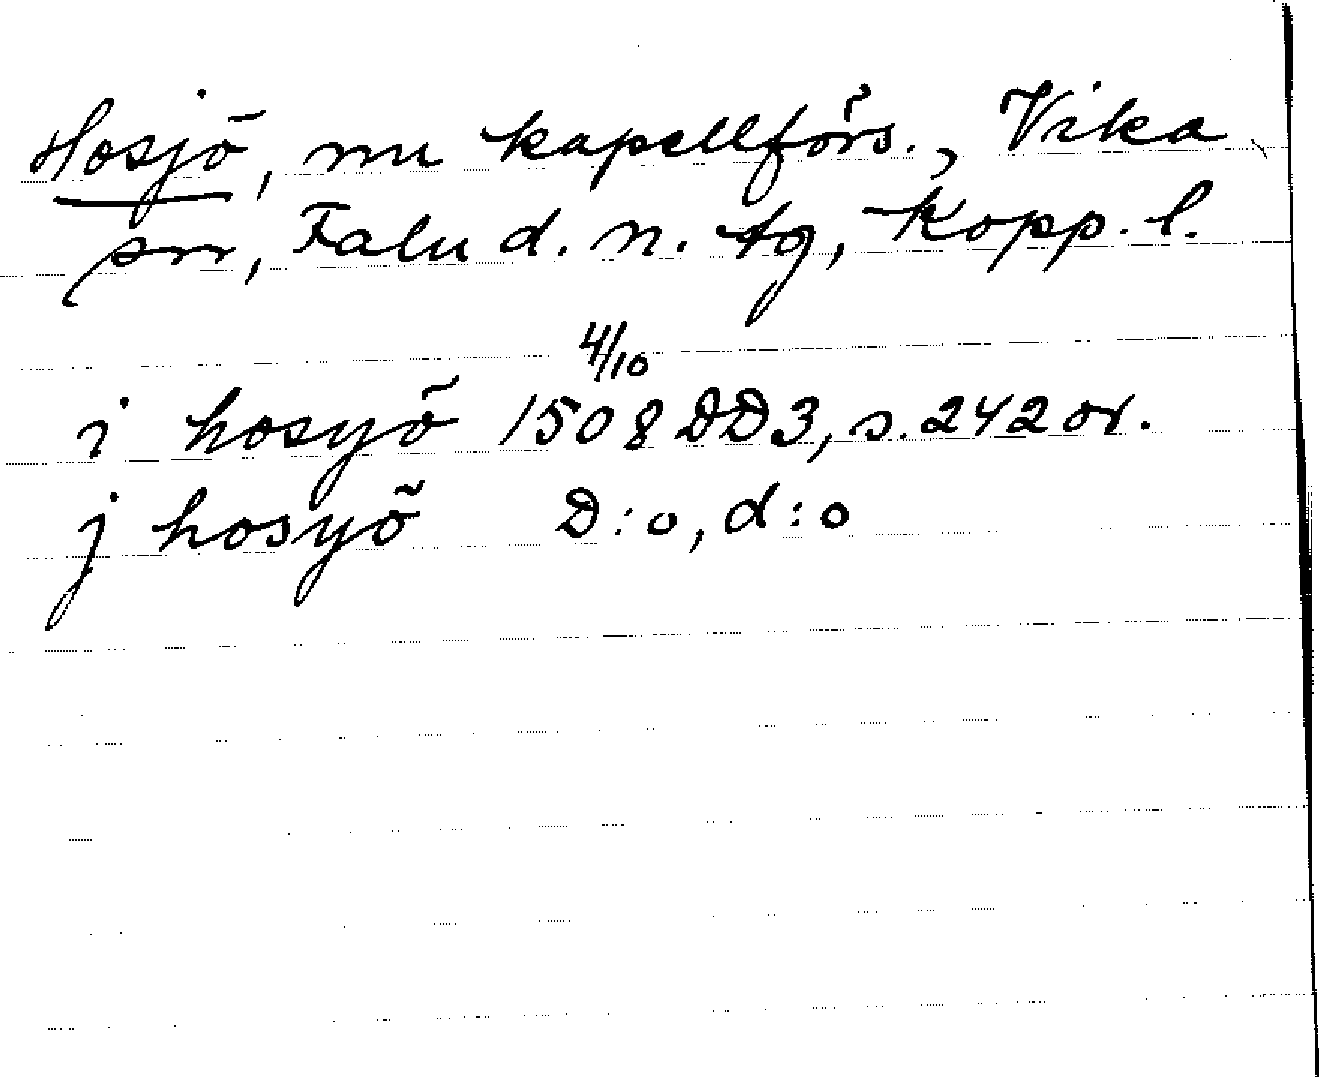 Hosjö, nu kapellförs., Vika
sn, Falu d. n. tg, Kopp. l.
4/10
i hosyö 1508 DD3, s. 242 or.
j hosyö D:o, d:o